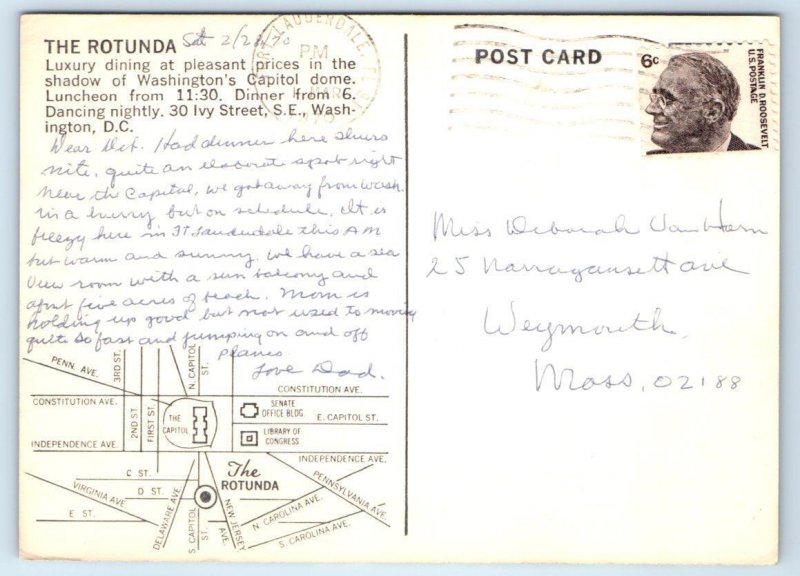 THE ROTUNDA Sat 2/28/70
Luxury dining at pleasant prices in the
shadow of Washington's Capitol dome.
Luncheon from 11:30. Dinner from 6.
Dancing nightly. 30 Ivy Street, S.E., Wash-
ington, D.C.
Dear Deb. Had dinner here thurs
nite, quite an elaborate spot right
near the Capital, we got away from Wash.
in a hurry but on schedule. It is
breezy here in Ft Lauderdale this AM
but warm and sunny. We have a sea
view room with a sun balcony and
about five acres of beach. Mom is
holding up good but not used to moving
quite so fast and jumping on and off
planes
Love Dad.
FT. LAUDERDALE, FLA.
PM
MAR
POST CARD
6¢
FRANKLIN D. ROOSEVELT
U.S. POSTAGE
Miss Deborah Van Horn
25 Narragansett ave
Weymouth,
Mass, 02188
PENN. AVE.
3RD ST.
N. CAPITOL ST.
CONSTITUTION AVE.
CONSTITUTION AVE.
2ND ST.
FIRST ST.
THE CAPITOL
SENATE
OFFICE BLDG.
E. CAPITOL ST.
LIBRARY OF
CONGRESS
INDEPENDENCE AVE.
INDEPENDENCE AVE.
C ST.
D ST.
E ST.
VIRGINIA AVE.
DELAWARE AVE.
S. CAPITOL ST.
NEW JERSEY AVE.
The
ROTUNDA
PENNSYLVANIA AVE.
N. CAROLINA AVE.
S. CAROLINA AVE.